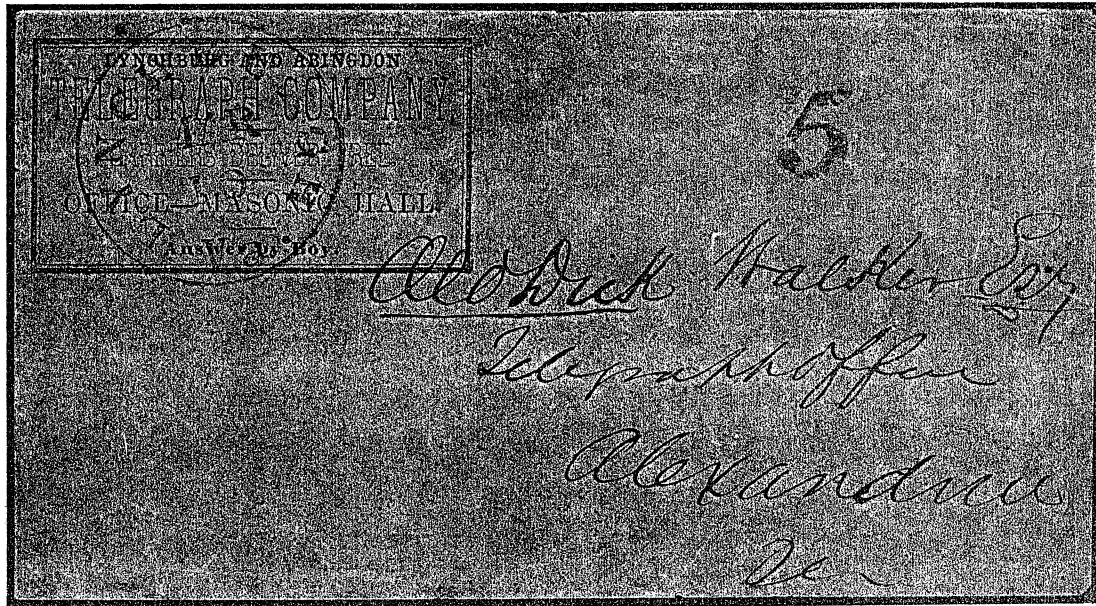 LYNCHBURG AND ABINGDON
TELEGRAPH COMPANY,
OFFICE—MASONIC HALL.
Answer by Boy
5
Old Dick Walker Esq
Telegraph Office
Alexandria
Va